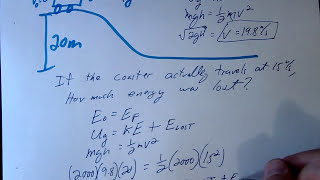 mgh = ½mv²
20m
√2gh = V = 19.8 m/s
If the coaster actually travels at 15 m/s,
How much energy was lost?
E₀ = E_F
U_g = KE + E_LOST
mgh = ½mv²
(2000)(9.8)(20) = ½(2000)(15²)